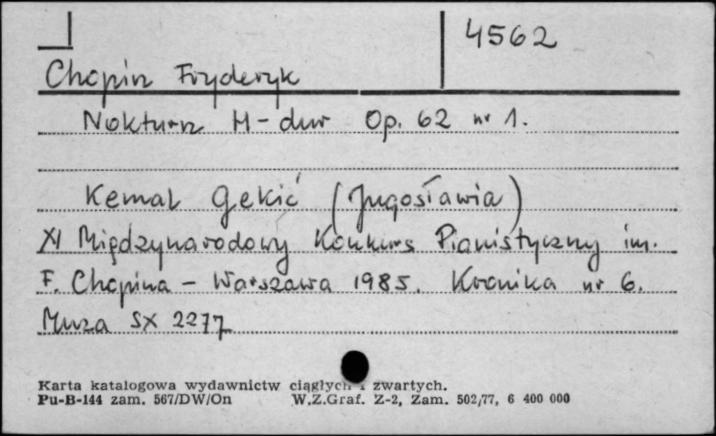 4562
Chopin Fryderyk
Nokturn H-dur Op. 62 nr 1.
Kemal Gekić (Jugosławia)
XI Międzynarodowy Konkurs Pianistyczny im.
F. Chopina - Warszawa 1985. Kronika nr 6.
Muza SX 2277
Karta katalogowa wydawnictw ciągłych i zwartych.
Pu-B-144 zam. 567/DW/On W.Z.Graf. Z-2, Zam. 502/77, 6 400 000